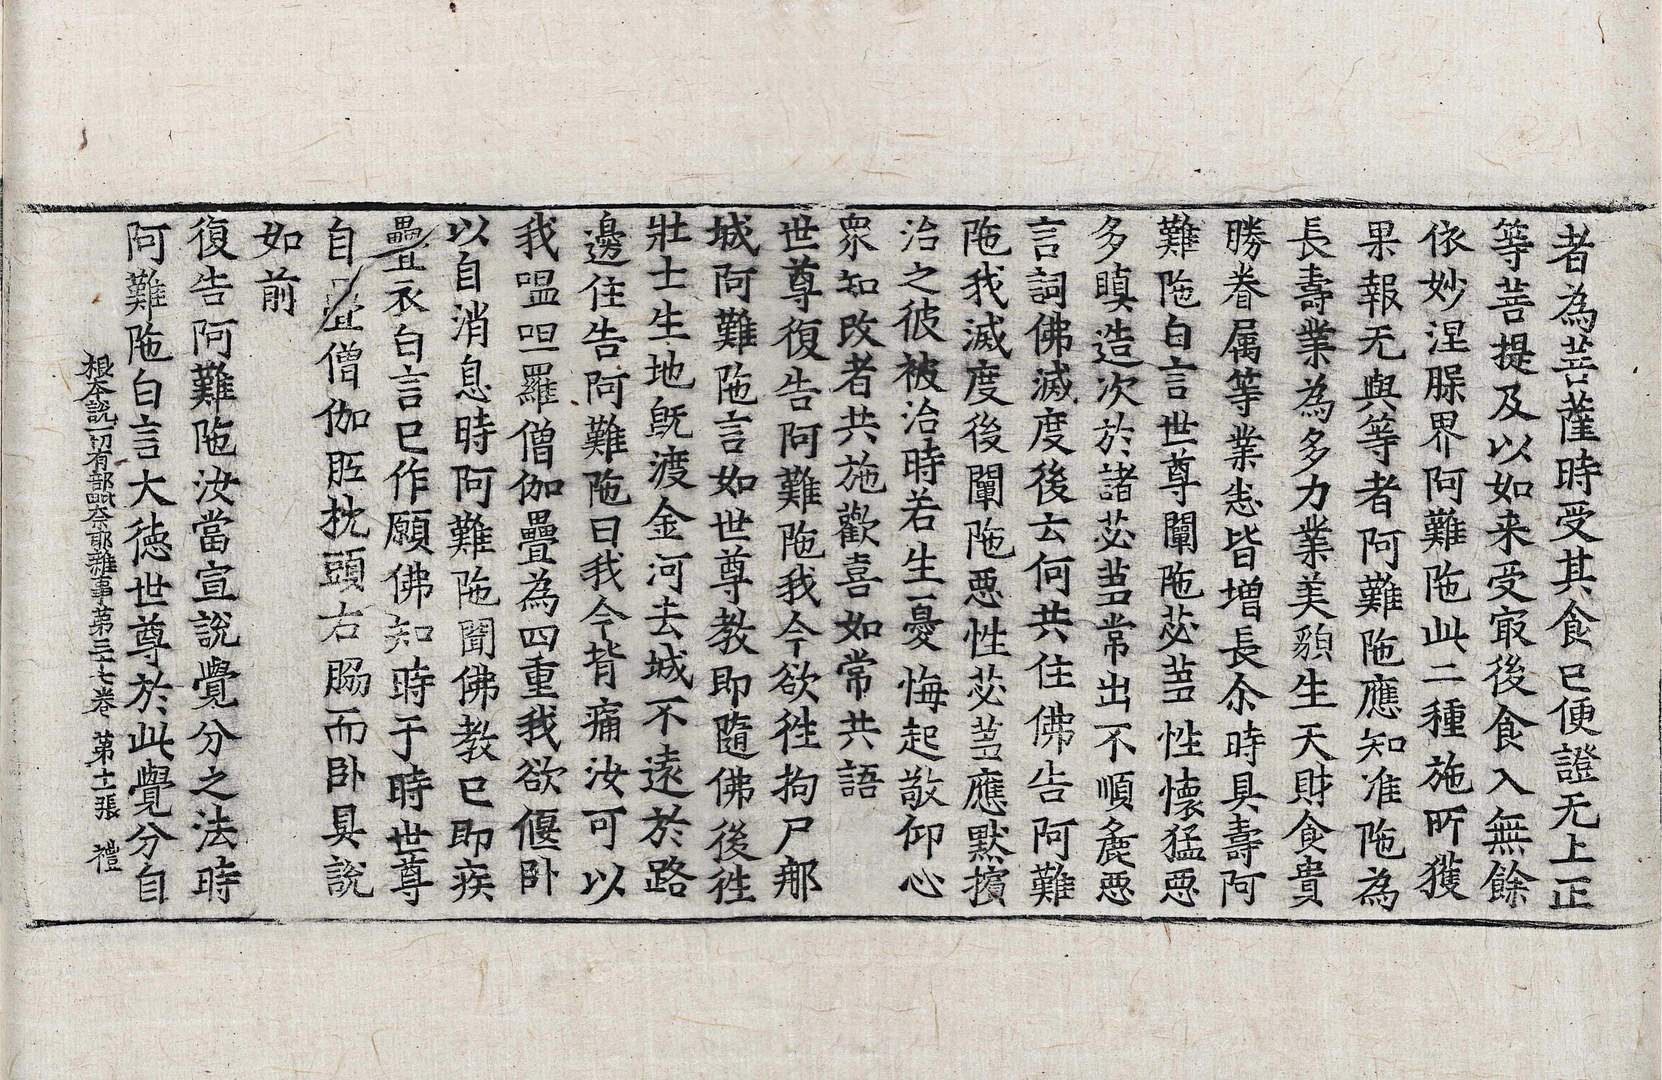 者為菩薩時受其食已便證无上正
等菩提及以如来受冣後食入無餘
依妙涅槃界阿難陁此二種施所獲
果報无與等者阿難陁應知准陁為
長壽業為多力業美䫉生天財食貴
勝眷属等業悉皆増長尒時具壽阿
難陁白言世尊闡陁苾芻性懷猛惡
多瞋造次於諸苾芻常出不順麁惡
言詞佛滅度後云何共住佛告阿難
陁我滅度後闡陁惡性苾芻應默擯
治之彼被治時若生憂悔起敬仰心
衆知改者共施歡喜如常共語
世尊復告阿難陁我今欲徃拘尸那
城阿難陁言如世尊教即隨佛後徃
壯士生地旣渡金河去城不遠於路
邊住告阿難陁曰我今背痛汝可以
我嗢呾羅僧伽疊為四重我欲偃卧
以自消息時阿難陁聞佛教已即疾
疊衣白言已作願佛知時于時世尊
自疊僧伽胝枕頭右脇而卧具說
如前
復告阿難陁汝當宣說覺分之法時
阿難陁白言大徳世尊於此覺分自
根本說一切有部毗奈耶雜事第三十七卷 第十一張 禮